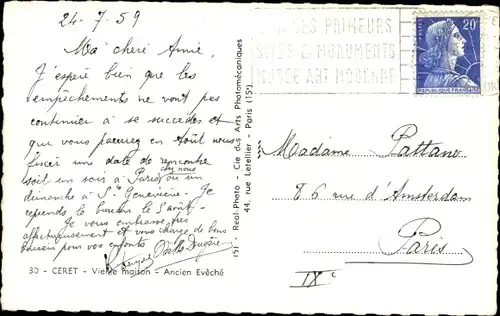 24-7-59
Ma chère Amie,
J'espère bien que les
empêchements ne vont pas
continuer à se succéder et
que vous pourrez en Août nous
fixer une date de rencontre
chez nous
soit un soir à Paris ou un
dimanche à Ste Geneviève. Je
reprends le bureau le 3 août.
Je vous embrasse très
affectueusement et vous charge de bons
baisers pour vos enfants
30 - CERET - Vieille maison - Ancien Evêché
151 - Real-Photo - Cie des Arts Photomécaniques
44, rue Letellier - Paris (15e)
SES PRIMEURS
SITES & MONUMENTS
MUSEE ART MODERNE
20F
Madame Pattano
86 rue d'Amsterdam
Paris
IXe